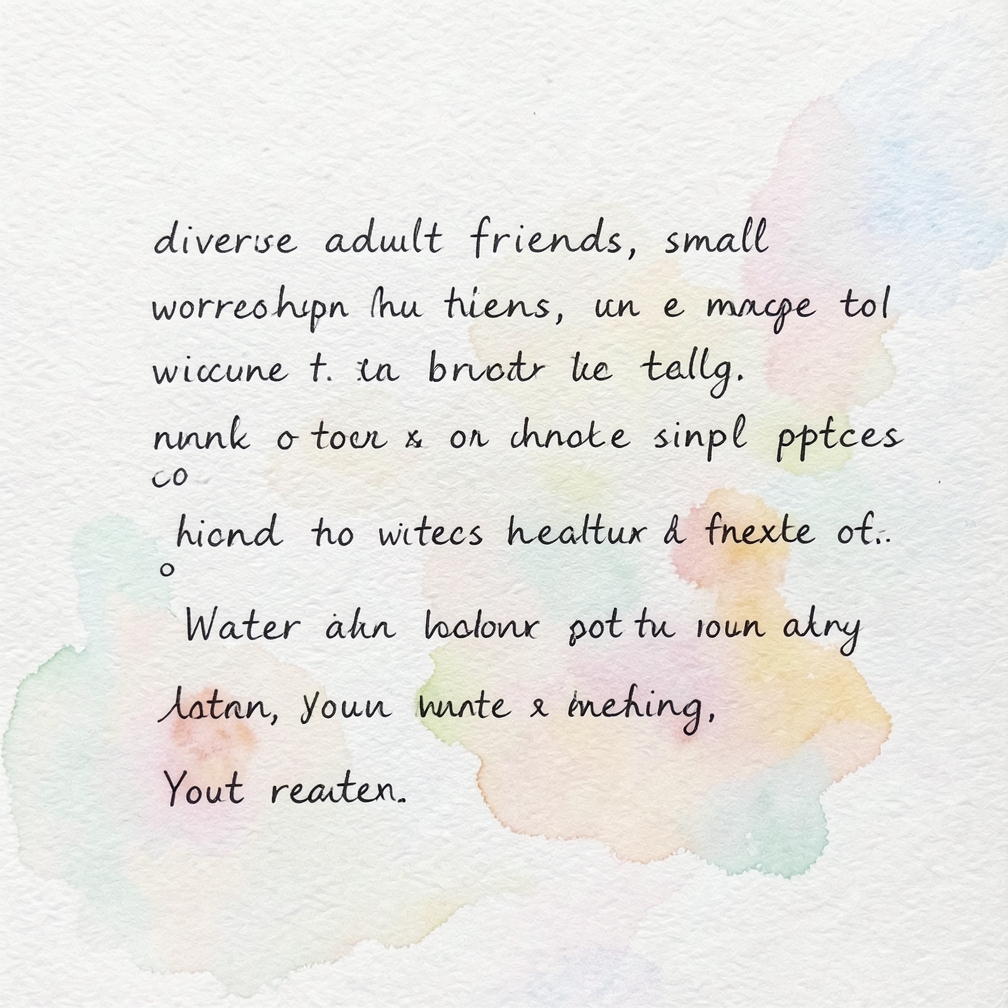 diverse adult friends, small
worreohipn hu hiens, un e macpe tol
wiccune t. in brvotr lie tallg.
nunk o tocr & on chnote sinpl pptces
co
hicnd tho witecs healtur & fnexte of..
o
Water ahn loclonr pot tu ioun akny
Youn wunte & inehing,
Yout reaiten.